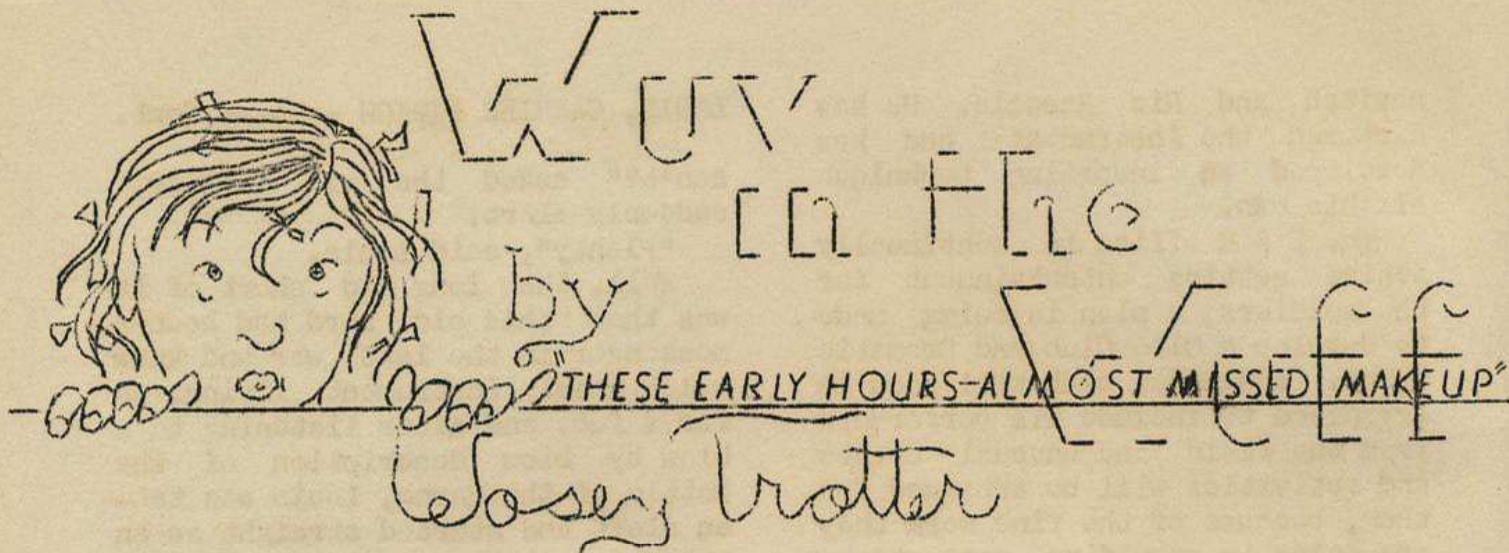 Wuv
in the
by
Weff
"THESE EARLY HOURS-ALMOST MISSED MAKEUP"
Wosey Trotter